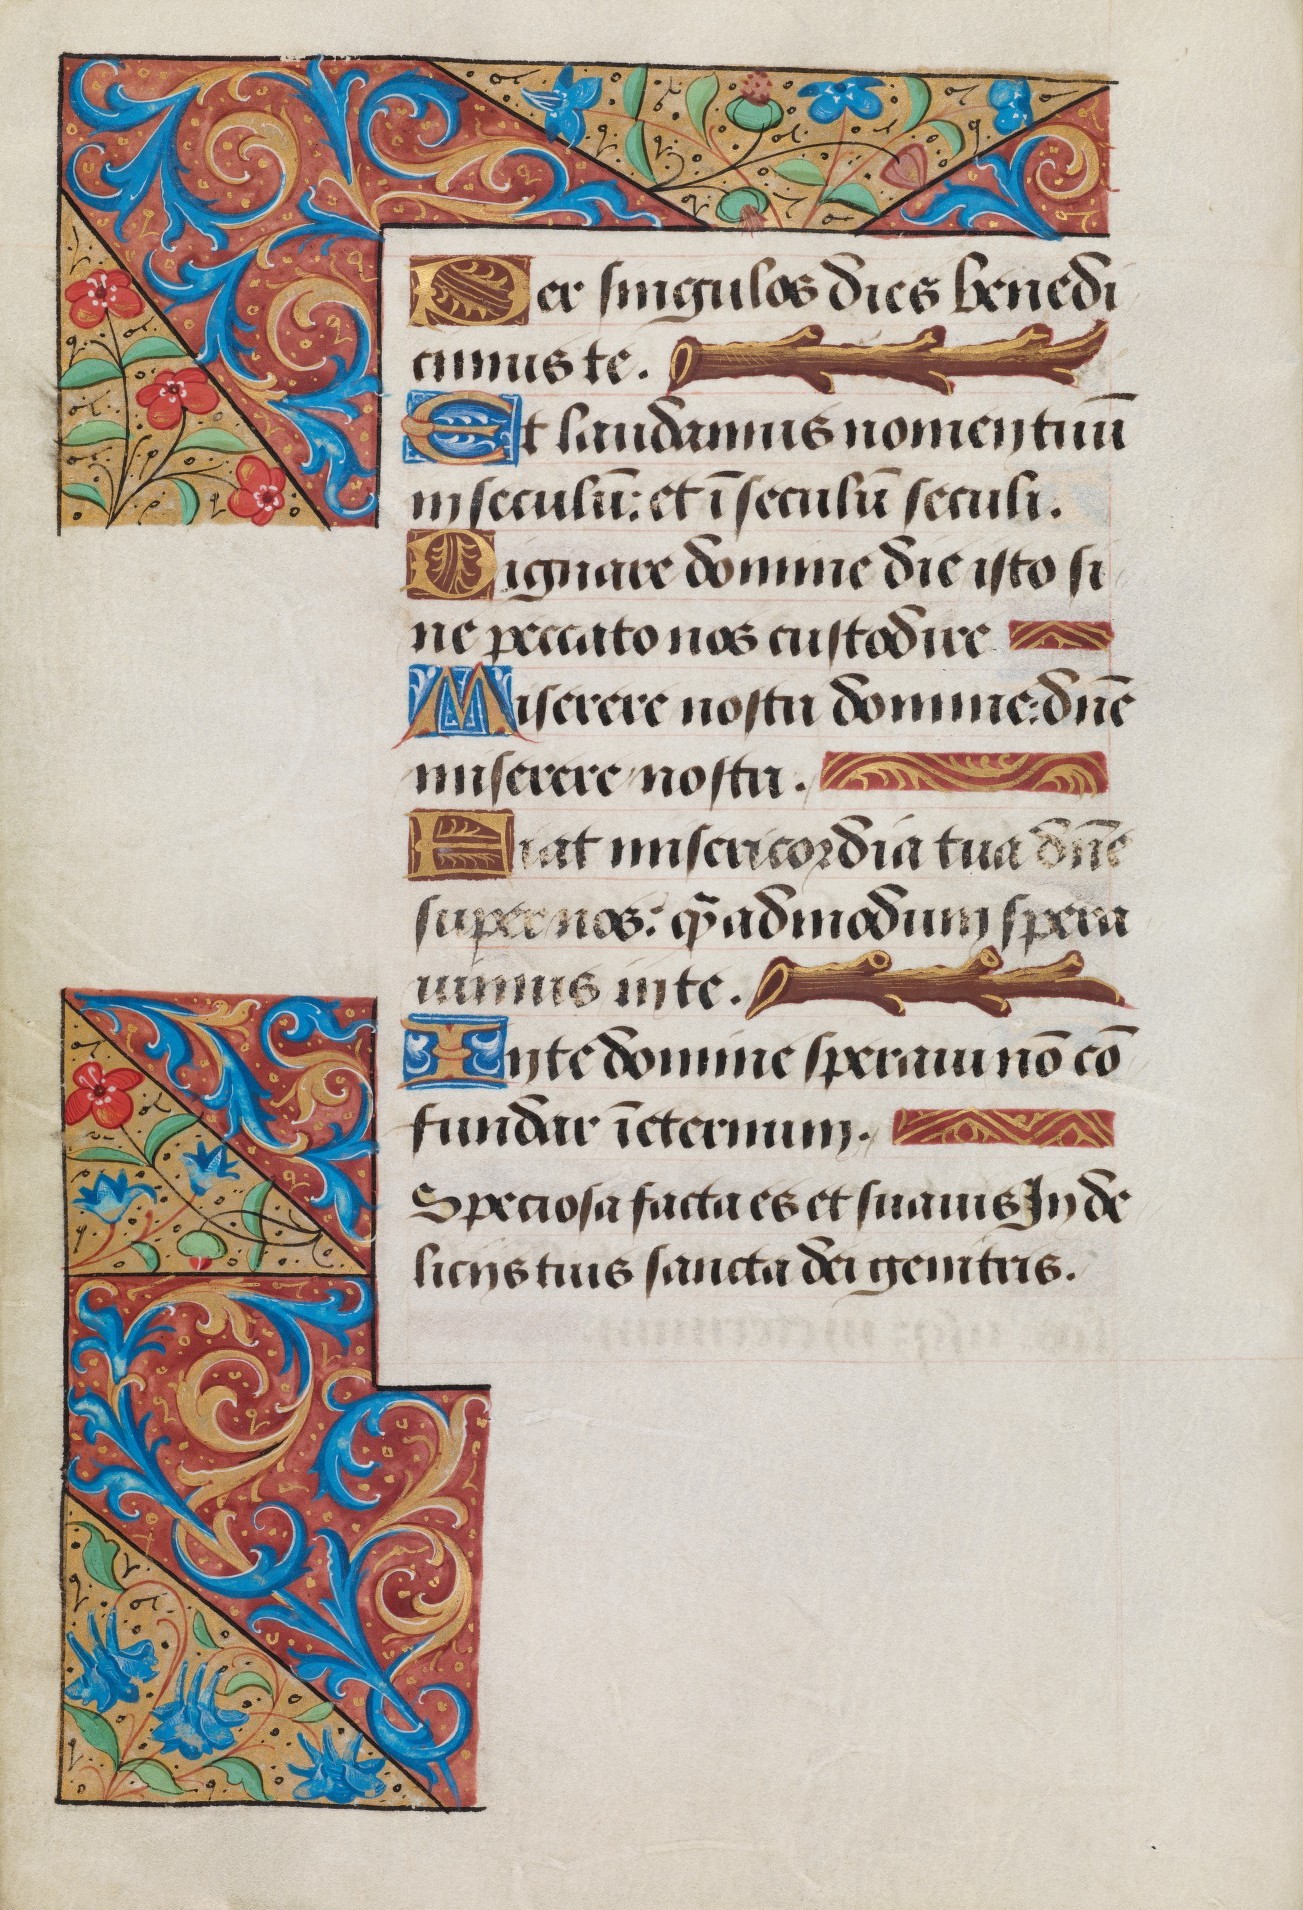 Per singulos dies benedi
cimus te.
Et laudamus nomen tuū
in seculū: et ī seculū seculi.
Dignare domine die isto si
ne peccato nos custodire
Miserere nostri domine: dñe
miserere nostri.
Fiat misericordia tua dñe
super nos: q̄admodum spera
uimus in te.
In te domine speraui nō cō
fundar ī eternum.
Speciosa facta es et suauis In de
licijs tuis sancta dei genitris.